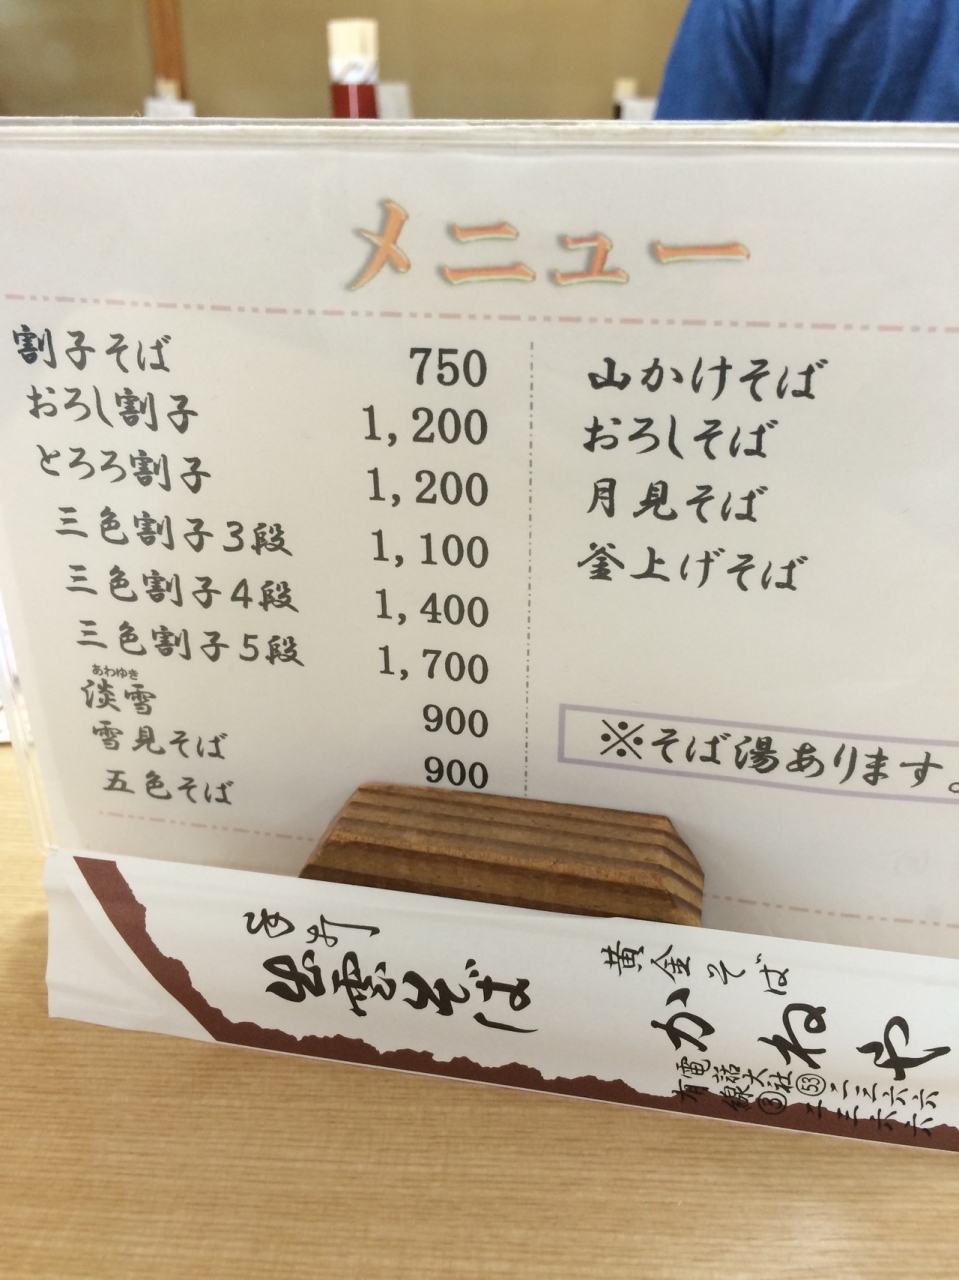 メニュー
割子そば 750
おろし割子 1,200
とろろ割子 1,200
三色割子3段 1,100
三色割子4段 1,400
三色割子5段 1,700
あわゆき
淡雪 900
雪見そば 900
五色そば
山かけそば
おろしそば
月見そば
釜上げそば
※そば湯あります。
出雲そば
黄金そば
かねや
電話大社㊼二三六六
有線③二三六六